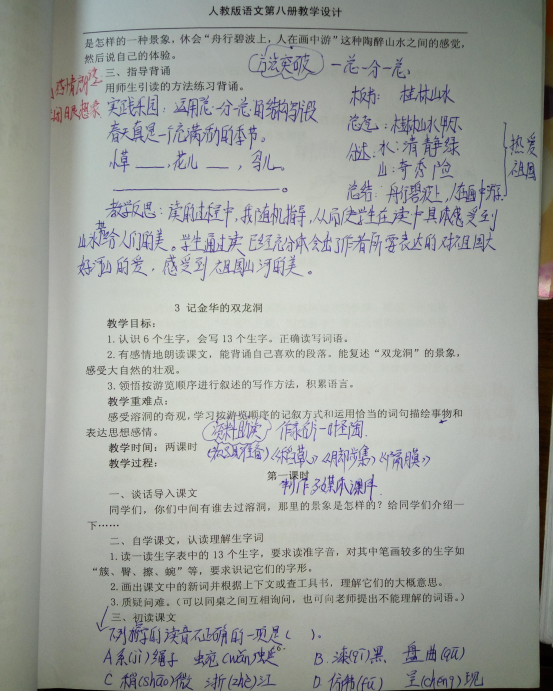 人教版语文第八册教学设计
是怎样的一种景象,休会“舟行碧波上,人在画中游”这种陶醉山水之间的感觉,
然后说自己的体验。
三、指导背诵
方法突破 一总一分一总
用师生引读的方法练习背诵。
板书: 桂林山水
春天真是一个充满 的季节。
小草 ,花儿 ,鸟儿 。
水:清 静 绿
山:奇 秀 险
总结:舟行碧波上,人在画中游
热爱
祖国
教学反思:读的过程中,我随机指导,从而使学生在读中具体感受到
山水 给人们的美。学生通过读 已经充分体会出了作者所要表达的对祖国大
好河山的爱,感受到祖国山河的美。
3 记金华的双龙洞
教学目标:
1.认识6个生字,会写13个生字。正确读写词语。
2.有感情地朗读课文,能背诵自己喜欢的段落,能复述“双龙洞”的景象,
感受大自然的壮观。
3.领悟按游览顺序进行叙述的写作方法,积累语言。
教学重难点:
感受溶洞的奇观,学习按游览顺序的记叙方式和运用恰当的词句描绘事物和
表达思想感情。
资料助读 作家
教学时间:两课时
《稻草人》《脚步集》
教学过程:
第一课时
制作多媒体课件
一、谈话导入课文
同学们,你们中间有谁去过溶洞,那里的景象是怎样的?给同学们介绍一
下……
二、自学课文,认读理解生字词
1.读一读生字表中的13个生字,要求读准字音,对其中笔画较多的生字如
“簇、臀、擦、蜿”等,要求识记它们的字形。
2.画出课文中的新词并根据上下文或查工具书,理解它们的大概意思。
3.质疑问难。(可以同桌之间互相询问,也可向老师提出不能理解的词语。)
三、初读课文
下列 的读音不正确的一项是( )。
A 系(jì)绳子 蜿(wān)蜒 B.漆(qī)黑 盘曲(qū)
C 稍(shāo)微 浙(zhè)江 D 呈(chéng)现